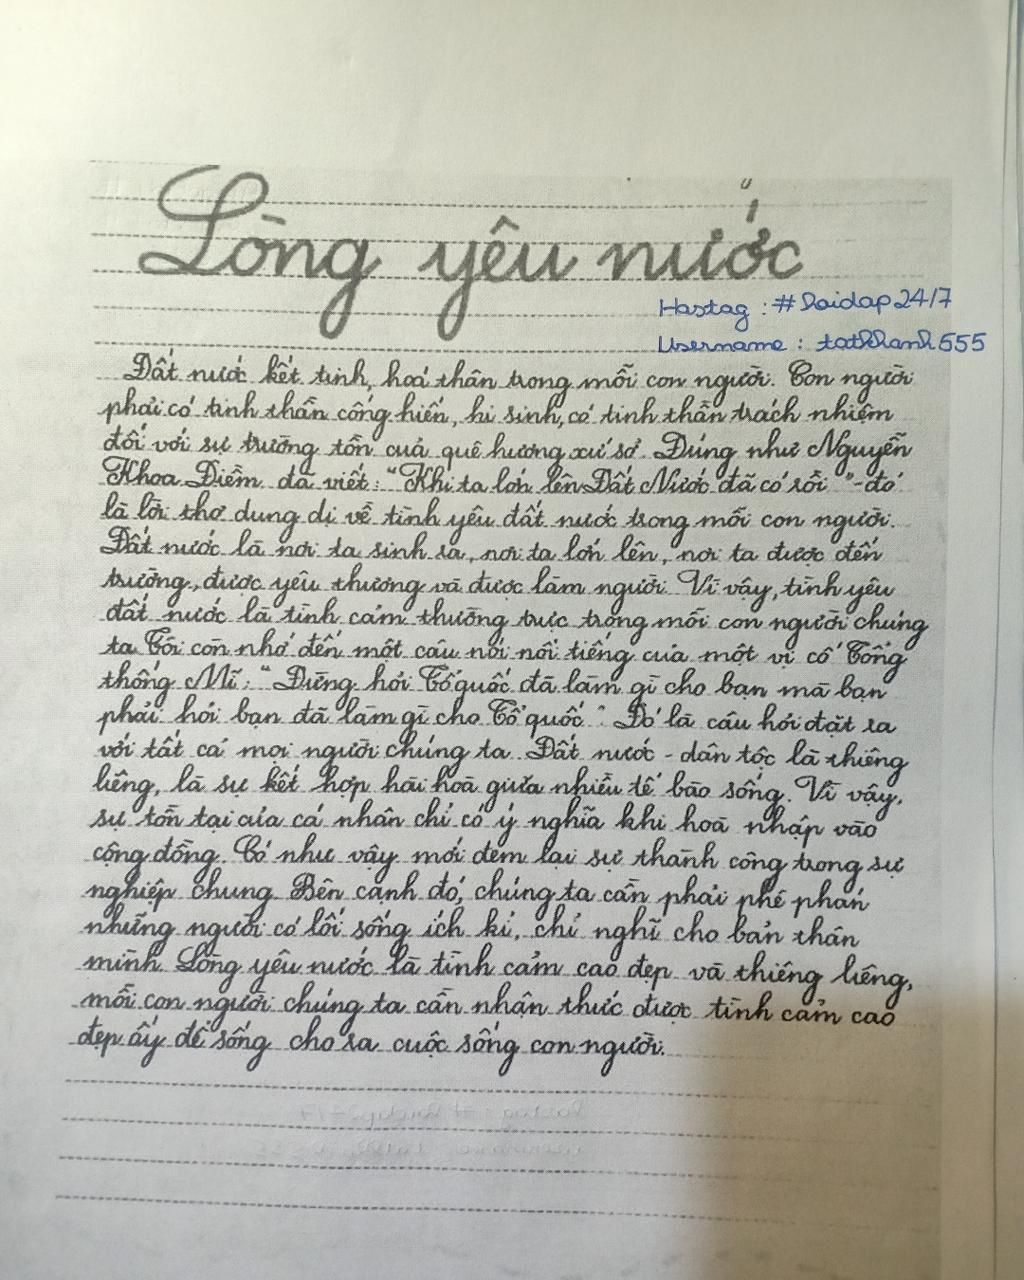 Lòng yêu nước
Hastag : #Daidap24/7
Username : tathkhanh555
Đất nước kết tinh, hoá thân trong mỗi con người. Con người
phải có tinh thần cống hiến, hi sinh, có tinh thần trách nhiệm
đối với sự trường tồn của quê hương xứ sở. Đúng như Nguyễn
Khoa Điềm đã viết: "Khi ta lớn lên Đất Nước đã có rồi" - đó
là lời thơ dung dị về tình yêu đất nước trong mỗi con người.
Đất nước là nơi ta sinh ra, nơi ta lớn lên, nơi ta được đến
trường, được yêu thương và được làm người. Vì vậy, tình yêu
đất nước là tình cảm thường trực trong mỗi con người chúng
ta. Tôi còn nhớ đến một câu nói nổi tiếng của một vị cố Tổng
thống Mĩ: "Đừng hỏi Tổ quốc đã làm gì cho bạn mà bạn
phải hỏi bạn đã làm gì cho Tổ quốc". Đó là câu hỏi đặt ra
với tất cả mọi người chúng ta. Đất nước - dân tộc là thiêng
liêng, là sự kết hợp hài hoà giữa nhiều tế bào sống. Vì vậy,
sự tồn tại của cá nhân chỉ có ý nghĩa khi hoà nhập vào
cộng đồng. Có như vậy mới đem lại sự thành công trong sự
nghiệp chung. Bên cạnh đó, chúng ta cần phải phê phán
những người có lối sống ích kỉ, chỉ nghĩ cho bản thân
mình. Lòng yêu nước là tình cảm cao đẹp và thiêng liêng,
mỗi con người chúng ta cần nhận thức được tình cảm cao
đẹp ấy để sống cho ra cuộc sống con người.